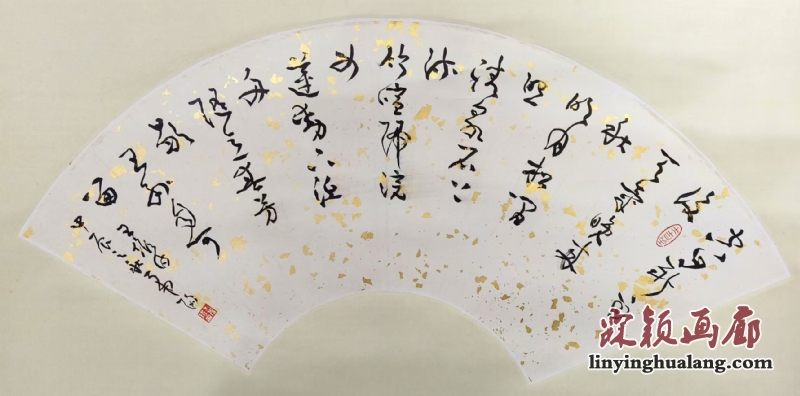 空山新雨
後
天氣晚來
秋
明月松間
照
清泉石上
流
竹喧歸浣
女
蓮動下漁
舟
隨意春芳
歇
王孫自可
留
霖颖画廊
linyinghualang.com